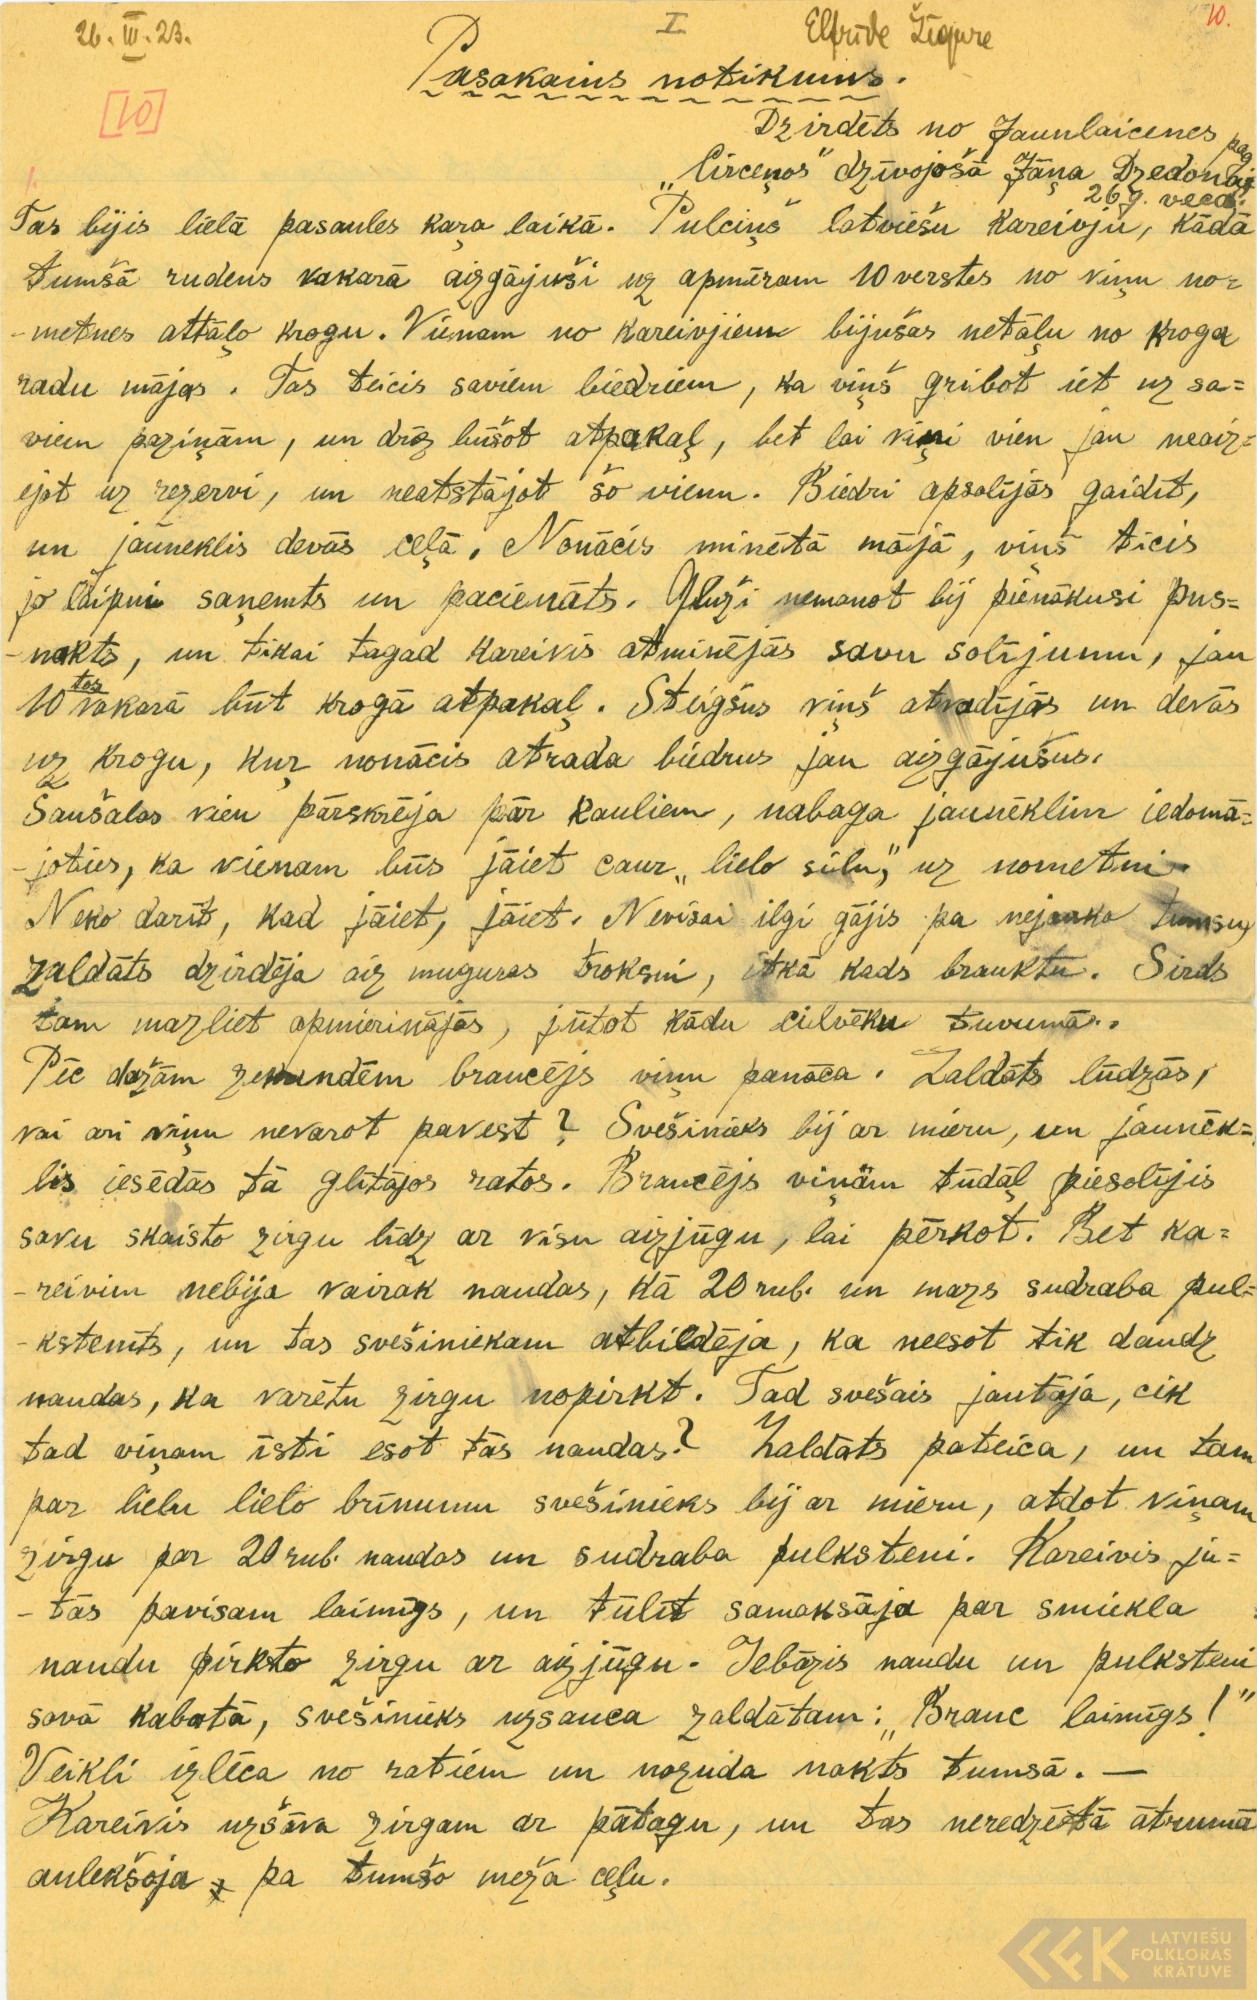 26. III. 23.
I
Elfrīde Žīgure
10.
Pasakains notikums.
[10]
Dzirdēts no Jaunlaicenes pag.
„Circeņos" dzīvojošā Jāņa Dzedonaj
26 g. veca.
1.
Tas bijis lielā pasaules kaŗa laikā. Pulciņš latviešu kareivju, kādā
tumšā rudens vakarā aizgājuši uz apmēram 10 verstes no viņu no=
-metnes attāļo krogu. Vienam no kareivjiem bijušas netāļu no kroga
radu mājas. Tas teicis saviem biedriem, ka viņš gribot iet uz sa=
viem paziņām, un drīz būšot atpakaļ, bet lai viņi vien jau neaiz=
ejot uz rezervi, un neatstājot šo vienu. Biedri apsolījās gaidīt,
un jauneklis devās ceļā. Nonācis minētā mājā, viņš ticis
jo laipni saņemts un pacienāts. Gluži nemanot bij pienākusi pus=
-nakts, un tikai tagad kareivis atminējās savu solījumu, jau
10tos vakarā būt krogā atpakaļ. Steigšus viņš atvadījās un devās
uz krogu, kuŗ nonācis atrada biedrus jau aizgājušus.
Šaušalas vien pārskrēja pār kauliem, nabaga jauneklim iedomā=
-joties, ka vienam būs jāiet caur „lielo silu," uz nometni.
Neko darīt, kad jāiet, jāiet. Nevisai ilgi gājis pa nejauko tumsu,
zaldāts dzirdēja aiz muguras troksni, itkā kāds brauktu. Sirds
tam mazliet apmierinājās, jūtot kādu cilvēku tuvumā.
Pēc dažām zekundēm braucējs viņu panāca. Zaldāts lūdzās,
vai arī viņu nevarot pavest? Svešinieks bij ar mieru, un jaunēk=
lis iesēdās tā glītajos ratos. Braucējs viņam tūdāļ piesolījis
savu skaisto zirgu līdz ar visu aizjūgu, lai pērkot. Bet ka=
-reivim nebija vairak naudas, kā 20 rub. un mazs sudraba pul=
-kstenīts, un tas svešiniekam atbildēja, ka neesot tik daudz
naudas, ka varētu zirgu nopirkt. Tad svešais jautāja, cik
tad viņam īsti esot tās naudas? Zaldāts pateica, un tam
par lielu lielo brīnumu svešinieks bij ar mieru, atdot viņam
zirgu par 20 rub. naudas un sudraba pulksteni. Kareivis ju=
-tās pavisam laimīgs, un tūlīt samaksāja par smiekla
naudu pirkto zirgu ar aizjūgu. Iebāzis naudu un pulksteni
savā kabatā, svešinieks uzsauca zaldātam: „Brauc laimīgs!"
Veikli izlēca no ratiem un nozuda nakts tumsā. —
Kareivis uzšāva zirgam ar pātagu, un tas neredzētā ātrumā
aulekšoja pa tumšo meža ceļu.
LATVIEŠU
FOLKLORAS
KRĀTUVE